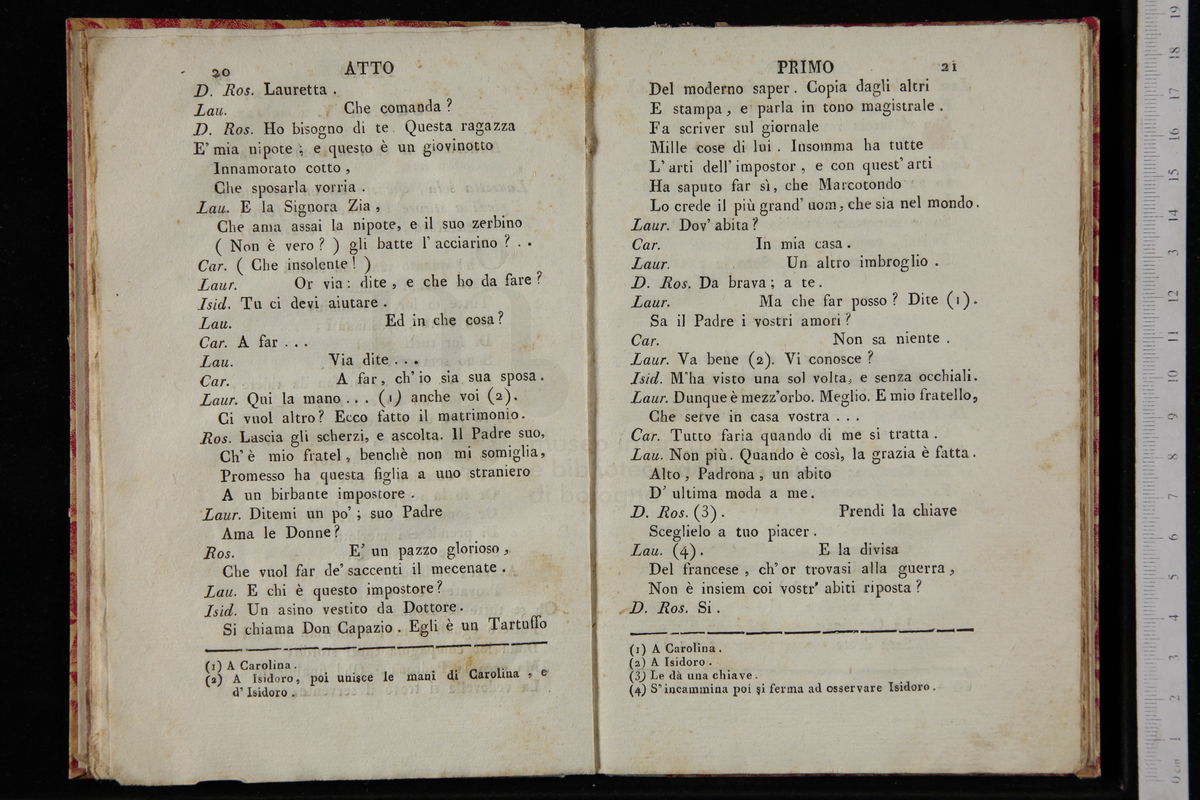 20 ATTO
D. Ros. Lauretta .
Lau. Che comanda ?
D. Ros. Ho bisogno di te Questa ragazza
E' mia nipote ; e questo è un giovinotto
Innamorato cotto ,
Che sposarla vorria .
Lau. E la Signora Zia ,
Che ama assai la nipote, e il suo zerbino
( Non è vero ? ) gli batte l' acciarino ? . .
Car. ( Che insolente ! )
Laur. Or via : dite , e che ho da fare ?
Isid. Tu ci devi aiutare .
Lau. Ed in che cosa ?
Car. A far . . .
Lau. Via dite . . .
Car. A far , ch' io sia sua sposa .
Laur. Qui la mano . . . (1) anche voi (2).
Ci vuol altro ? Ecco fatto il matrimonio.
Ros. Lascia gli scherzi, e ascolta. Il Padre suo,
Ch' è mio fratel , benchè non mi somiglia,
Promesso ha questa figlia a uno straniero
A un birbante impostore .
Laur. Ditemi un po' ; suo Padre
Ama le Donne ?
Ros. E' un pazzo glorioso ,
Che vuol far de' saccenti il mecenate .
Lau. E chi è questo impostore ?
Isid. Un asino vestito da Dottore .
Si chiama Don Capazio . Egli è un Tartuffo
(1) A Carolina .
(2) A Isidoro , poi unisce le mani di Carolina , e
d' Isidoro .
PRIMO 21
Del moderno saper . Copia dagli altri
E stampa , e parla in tono magistrale .
Fa scriver sul giornale
Mille cose di lui . Insomma ha tutte
L' arti dell' impostor , e con quest' arti
Ha saputo far sì, che Marcotondo
Lo crede il più grand' uom, che sia nel mondo.
Laur. Dov' abita ?
Car. In mia casa .
Laur. Un altro imbroglio .
D. Ros. Da brava ; a te .
Laur. Ma che far posso ? Dite (1).
Sa il Padre i vostri amori ?
Car. Non sa niente .
Laur. Va bene (2). Vi conosce ?
Isid. M'ha visto una sol volta, e senza occhiali.
Laur. Dunque è mezz'orbo. Meglio. E mio fratello,
Che serve in casa vostra . . .
Car. Tutto faria quando di me si tratta .
Lau. Non più . Quando è così, la grazia è fatta .
Alto , Padrona , un abito
D' ultima moda a me .
D. Ros. (3) . Prendi la chiave
Sceglielo a tuo piacer .
Lau. (4) . E la divisa
Del francese , ch' or trovasi alla guerra ,
Non è insiem coi vostr' abiti riposta ?
D. Ros. Si .
(1) A Carolina .
(2) A Isidoro .
(3) Le dà una chiave .
(4) S' incammina poi si ferma ad osservare Isidoro .